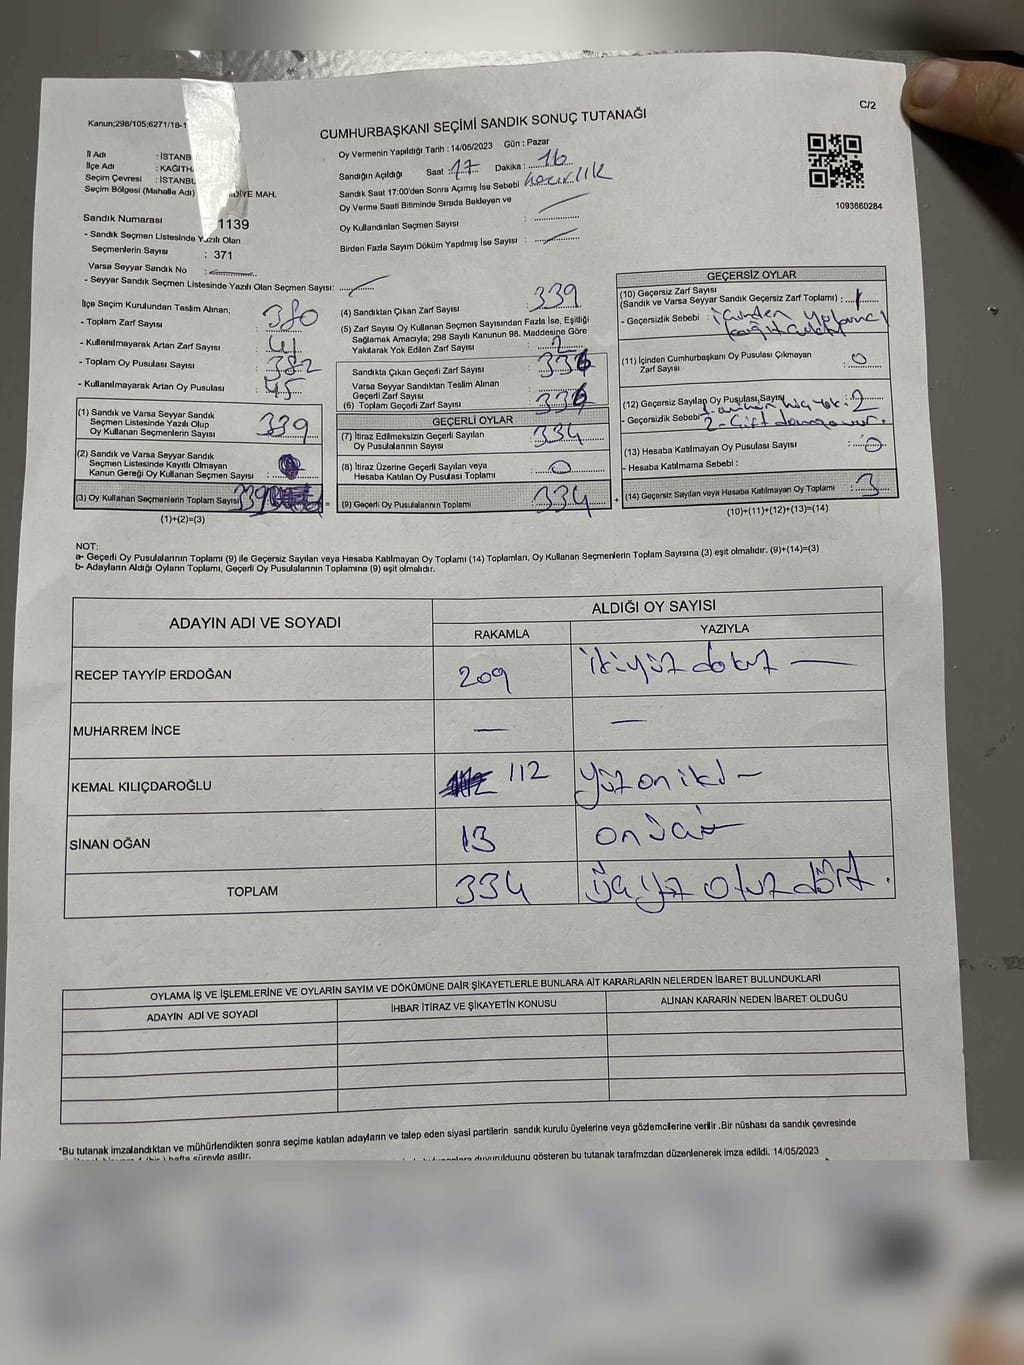 C/2
Kanun;298/105;6271/18-1
CUMHURBAŞKANI SEÇİMİ SANDIK SONUÇ TUTANAĞI
İl Adı : İSTANB
İlçe Adı : KAĞITH
Seçim Çevresi : İSTANBU
Seçim Bölgesi (Mahalle Adı) DİYE MAH.
Sandık Numarası 1139
- Sandık Seçmen Listesinde Yazılı Olan
Seçmenlerin Sayısı : 371
Varsa Seyyar Sandık No :
- Seyyar Sandık Seçmen Listesinde Yazılı Olan Seçmen Sayısı:
Oy Vermenin Yapıldığı Tarih : 14/05/2023 Gün : Pazar
Sandığın Açıldığı Saat : 17 Dakika : 16
Sandık Saat 17:00'den Sonra Açılmış İse Sebebi hazırlık
Oy Verme Saati Bitiminde Sırada Bekleyen ve
Oy Kullandırılan Seçmen Sayısı :
Birden Fazla Sayım Döküm Yapılmış İse Sayısı :
1093660284
İlçe Seçim Kurulundan Teslim Alınan;
- Toplam Zarf Sayısı : 380
- Kullanılmayarak Artan Zarf Sayısı : 41
- Toplam Oy Pusulası Sayısı : 382
- Kullanılmayarak Artan Oy Pusulası : 45
(1) Sandık ve Varsa Seyyar Sandık
Seçmen Listesinde Yazılı Olup
Oy Kullanan Seçmenlerin Sayısı : 339
(2) Sandık ve Varsa Seyyar Sandık
Seçmen Listesinde Kayıtlı Olmayan
Kanun Gereği Oy Kullanan Seçmen Sayısı :
(3) Oy Kullanan Seçmenlerin Toplam Sayısı 339
(1)+(2)=(3)
(4) Sandıktan Çıkan Zarf Sayısı : 339
(5) Zarf Sayısı Oy Kullanan Seçmen Sayısından Fazla İse, Eşitliği
Sağlamak Amacıyla; 298 Sayılı Kanunun 98. Maddesine Göre
Yakılarak Yok Edilen Zarf Sayısı : 2
Sandıkta Çıkan Geçerli Zarf Sayısı : 336
Varsa Seyyar Sandıktan Teslim Alınan
Geçerli Zarf Sayısı :
(6) Toplam Geçerli Zarf Sayısı : 336
GEÇERLİ OYLAR
(7) İtiraz Edilmeksizin Geçerli Sayılan
Oy Pusulasının Sayısı : 334
(8) İtiraz Üzerine Geçerli Sayılan veya
Hesaba Katılan Oy Pusulası Toplamı : 0
(9) Geçerli Oy Pusulalarının Toplamı : 334
GEÇERSİZ OYLAR
(10) Geçersiz Zarf Sayısı
(Sandık ve Varsa Seyyar Sandık Geçersiz Zarf Toplamı) : 1
- Geçersizlik Sebebi : içinden
(11) İçinden Cumhurbaşkanı Oy Pusulası Çıkmayan
Zarf Sayısı : 0
(12) Geçersiz Sayılan Oy Pusulası Sayısı : 2
- Geçersizlik Sebebi
2- Çift damga var.
(13) Hesaba Katılmayan Oy Pusulası Sayısı : 0
- Hesaba Katılmama Sebebi :
(14) Geçersiz Sayılan veya Hesaba Katılmayan Oy Toplamı : 3
(10)+(11)+(12)+(13)=(14)
NOT:
a- Geçerli Oy Pusulalarının Toplamı (9) ile Geçersiz Sayılan veya Hesaba Katılmayan Oy Toplamı (14) Toplamları, Oy Kullanan Seçmenlerin Toplam Sayısına (3) eşit olmalıdır. (9)+(14)=(3)
b- Adayların Aldığı Oyların Toplamı, Geçerli Oy Pusulalarının Toplamına (9) eşit olmalıdır.
ADAYIN ADI VE SOYADI ALDIĞI OY SAYISI
RAKAMLA YAZIYLA
RECEP TAYYİP ERDOĞAN 209 ikiyüz dokuz —
MUHARREM İNCE — —
KEMAL KILIÇDAROĞLU 112 yüz on iki —
SİNAN OĞAN 13 on üç —
TOPLAM 334 üçyüz otuz dört.
OYLAMA İŞ VE İŞLEMLERİNE VE OYLARIN SAYIM VE DÖKÜMÜNE DAİR ŞİKAYETLERLE BUNLARA AİT KARARLARIN NELERDEN İBARET BULUNDUKLARI
ADAYIN ADI VE SOYADI İHBAR İTİRAZ VE ŞİKAYETİN KONUSU ALINAN KARARIN NEDEN İBARET OLDUĞU
*Bu tutanak imzalandıktan ve mühürlendikten sonra seçime katılan adayların ve talep eden siyasi partilerin sandık kurulu üyelerine veya gözlemcilerine verilir .Bir nüshası da sandık çevresinde
(bir) hafta süreyle asılır.
duyurulduğunu gösteren bu tutanak tarafımızdan düzenlenerek imza edildi. 14/05/2023